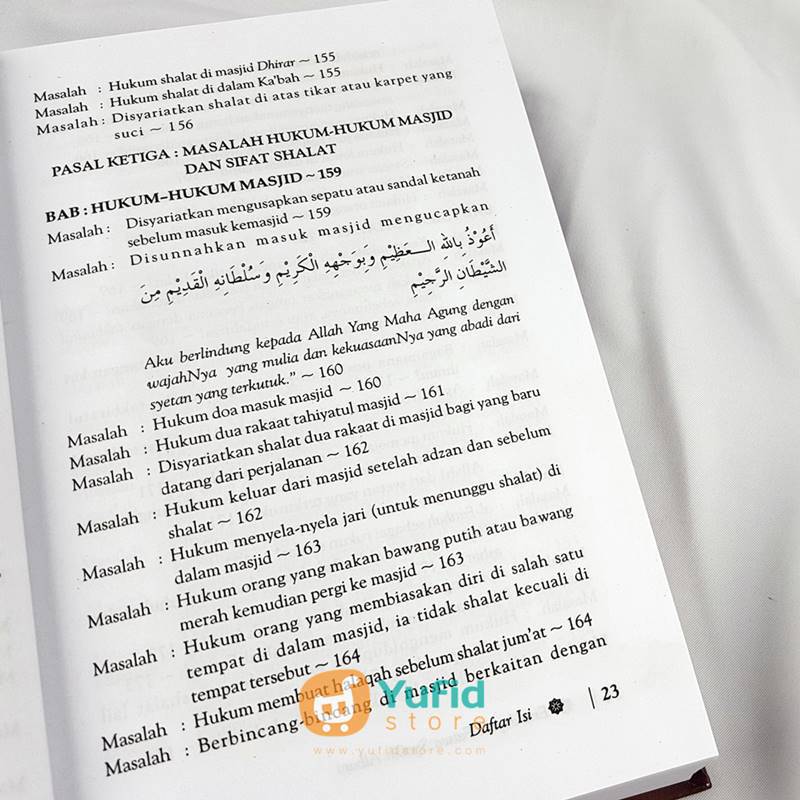 Masalah : Hukum shalat di masjid Dhirar ~ 155
Masalah : Hukum shalat di dalam Ka'bah ~ 155
Masalah : Disyariatkan shalat di atas tikar atau karpet yang
suci ~ 156
PASAL KETIGA : MASALAH HUKUM-HUKUM MASJID
DAN SIFAT SHALAT
BAB : HUKUM-HUKUM MASJID ~ 159
Masalah : Disyariatkan mengusapkan sepatu atau sandal ketanah
sebelum masuk kemasjid ~ 159
Masalah : Disunnahkan masuk masjid mengucapkan
أَعُوْذُ بِاللهِ الْعَظِيْمِ وَبِوَجْهِهِ الْكَرِيْمِ وَسُلْطَانِهِ الْقَدِيْمِ مِنَ
الشَّيْطَانِ الرَّجِيْمِ
Aku berlindung kepada Allah Yang Maha Agung dengan
wajahNya yang mulia dan kekuasaanNya yang abadi dari
syetan yang terkutuk." ~ 160
Masalah : Hukum doa masuk masjid ~ 160
Masalah : Hukum dua rakaat tahiyatul masjid ~ 161
Masalah : Disyariatkan shalat dua rakaat di masjid bagi yang baru
datang dari perjalanan ~ 162
Masalah : Hukum keluar dari masjid setelah adzan dan sebelum
shalat ~ 162
Masalah : Hukum menyela-nyela jari (untuk menunggu shalat) di
dalam masjid ~ 163
Masalah : Hukum orang yang makan bawang putih atau bawang
merah kemudian pergi ke masjid ~ 163
Masalah : Hukum orang yang membiasakan diri di salah satu
tempat di dalam masjid, ia tidak shalat kecuali di
tempat tersebut ~ 164
Masalah : Hukum membuat halaqah sebelum shalat jum'at ~ 164
Masalah : Berbincang-bincang di masjid berkaitan dengan
Daftar Isi | 23
YuFid
store
www.yufidstore.com